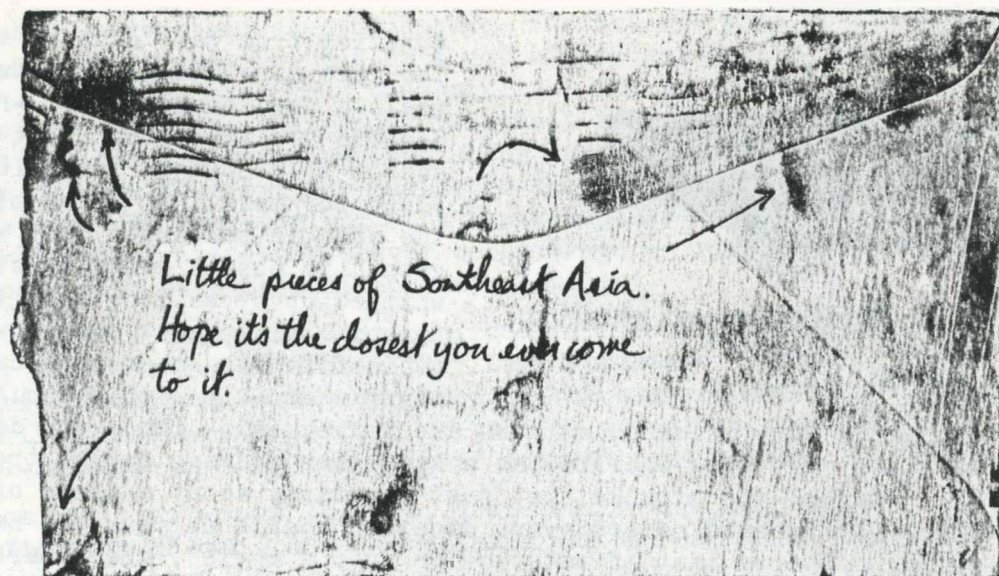 Little pieces of Southeast Asia.
Hope it's the closest you ever come
to it.